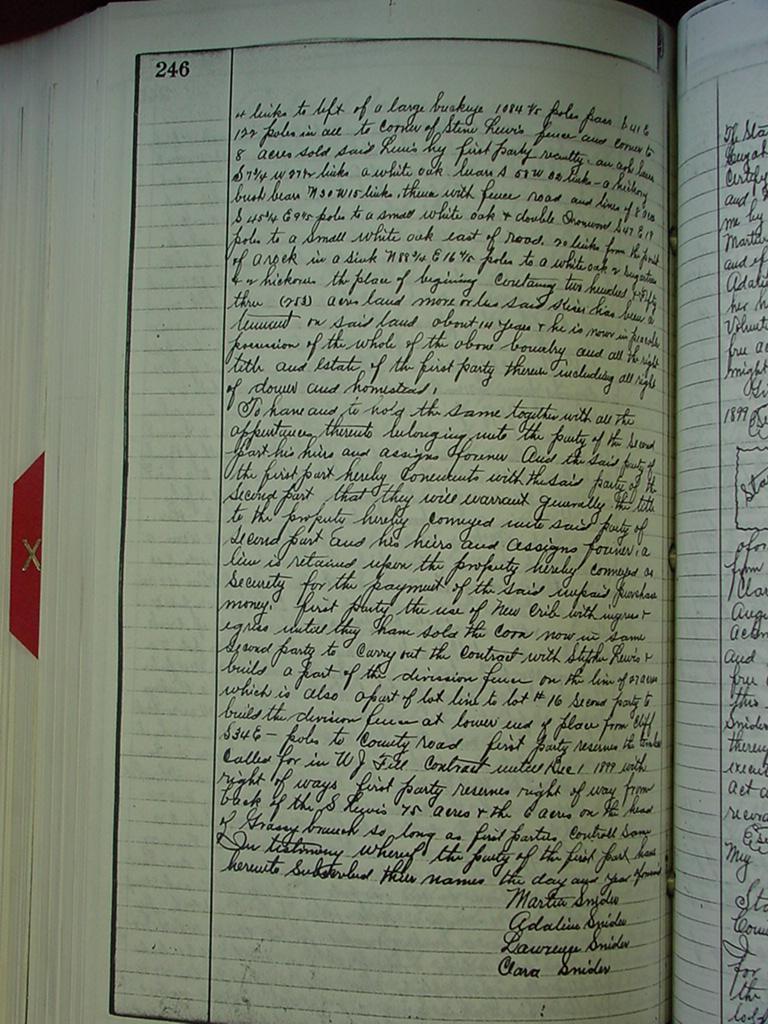 246
4 links to left of a large buckeye 1084 4/5 poles pass S 41 E
122 poles in all to corner of Steve Lewis fence and corner to
8 acres sold said Lewis by first party recently an ash bears
S 7 3/4 W links a white oak bears S 58 W links a hickory
bush bears N 30 W 15 links thence with fence road and lines of 8 acres
S 45 1/4 E poles to a small white oak & double Ironwood S 47 E 19
poles to a small white oak east of road. 20 links from the point
of a rock in a sink N 88 3/4 E 16 4/5 poles to a white oak 2 Sugartrees
& 2 hickories the place of begining Containing two hundred & fifty
three (253) acres land more or less said Steve has been a
tennent on said land about 14 years & he is now in peaceable
possession of the whole of the above boundry and all the right
title and estate of the first party therein including all right
of dower and homestead.
To have and to hold the same together with all the
appurtances thereto belonging unto the party of the Second
part his heirs and assigns forever And the said party of
the first part hereby Convenants with the said party of the
Second part that they will warrant generally the title
to the property hereby conveyed unto said party of
second part and his heirs and assigns forever, a
lien is retained upon the property hereby conveyed as
Security for the payment of the said unpaid purchase
money. first party the use of New Crib with ingress &
egress untill they have sold the Corn now in same
Second party to Carry out the Contract with Stephen Lewis &
build a part of the division fence on the line of 27 acres
which is also apart of lot line to lot # 16 Second party to
build the division fence at lower end of place from Cliff
S 34 E – poles to County road first party reserves the timber
Called for in W J Fill Contract untill Dec 1 1899 with
right of ways first party reserves right of way from
back of the S Lewis 75 acres & the 6 acres on the head
of Grassy branch so long as first parties Controll Same
In testimony whereof the party of the first part have
hereunto Subscribed their names the day and year aforesaid
Martin Snider
Adaline Snider
Lawrence Snider
Clara Snider
X
The Sta
Certify
and
me by
Martin
and of
Adaline
her h
Volunt
free ac
might
Gi
1899
Sta
from
Clar
Augu
and
free
this
Snider
thereu
execut
act a
record
My
Sta
Coun
I
for
the